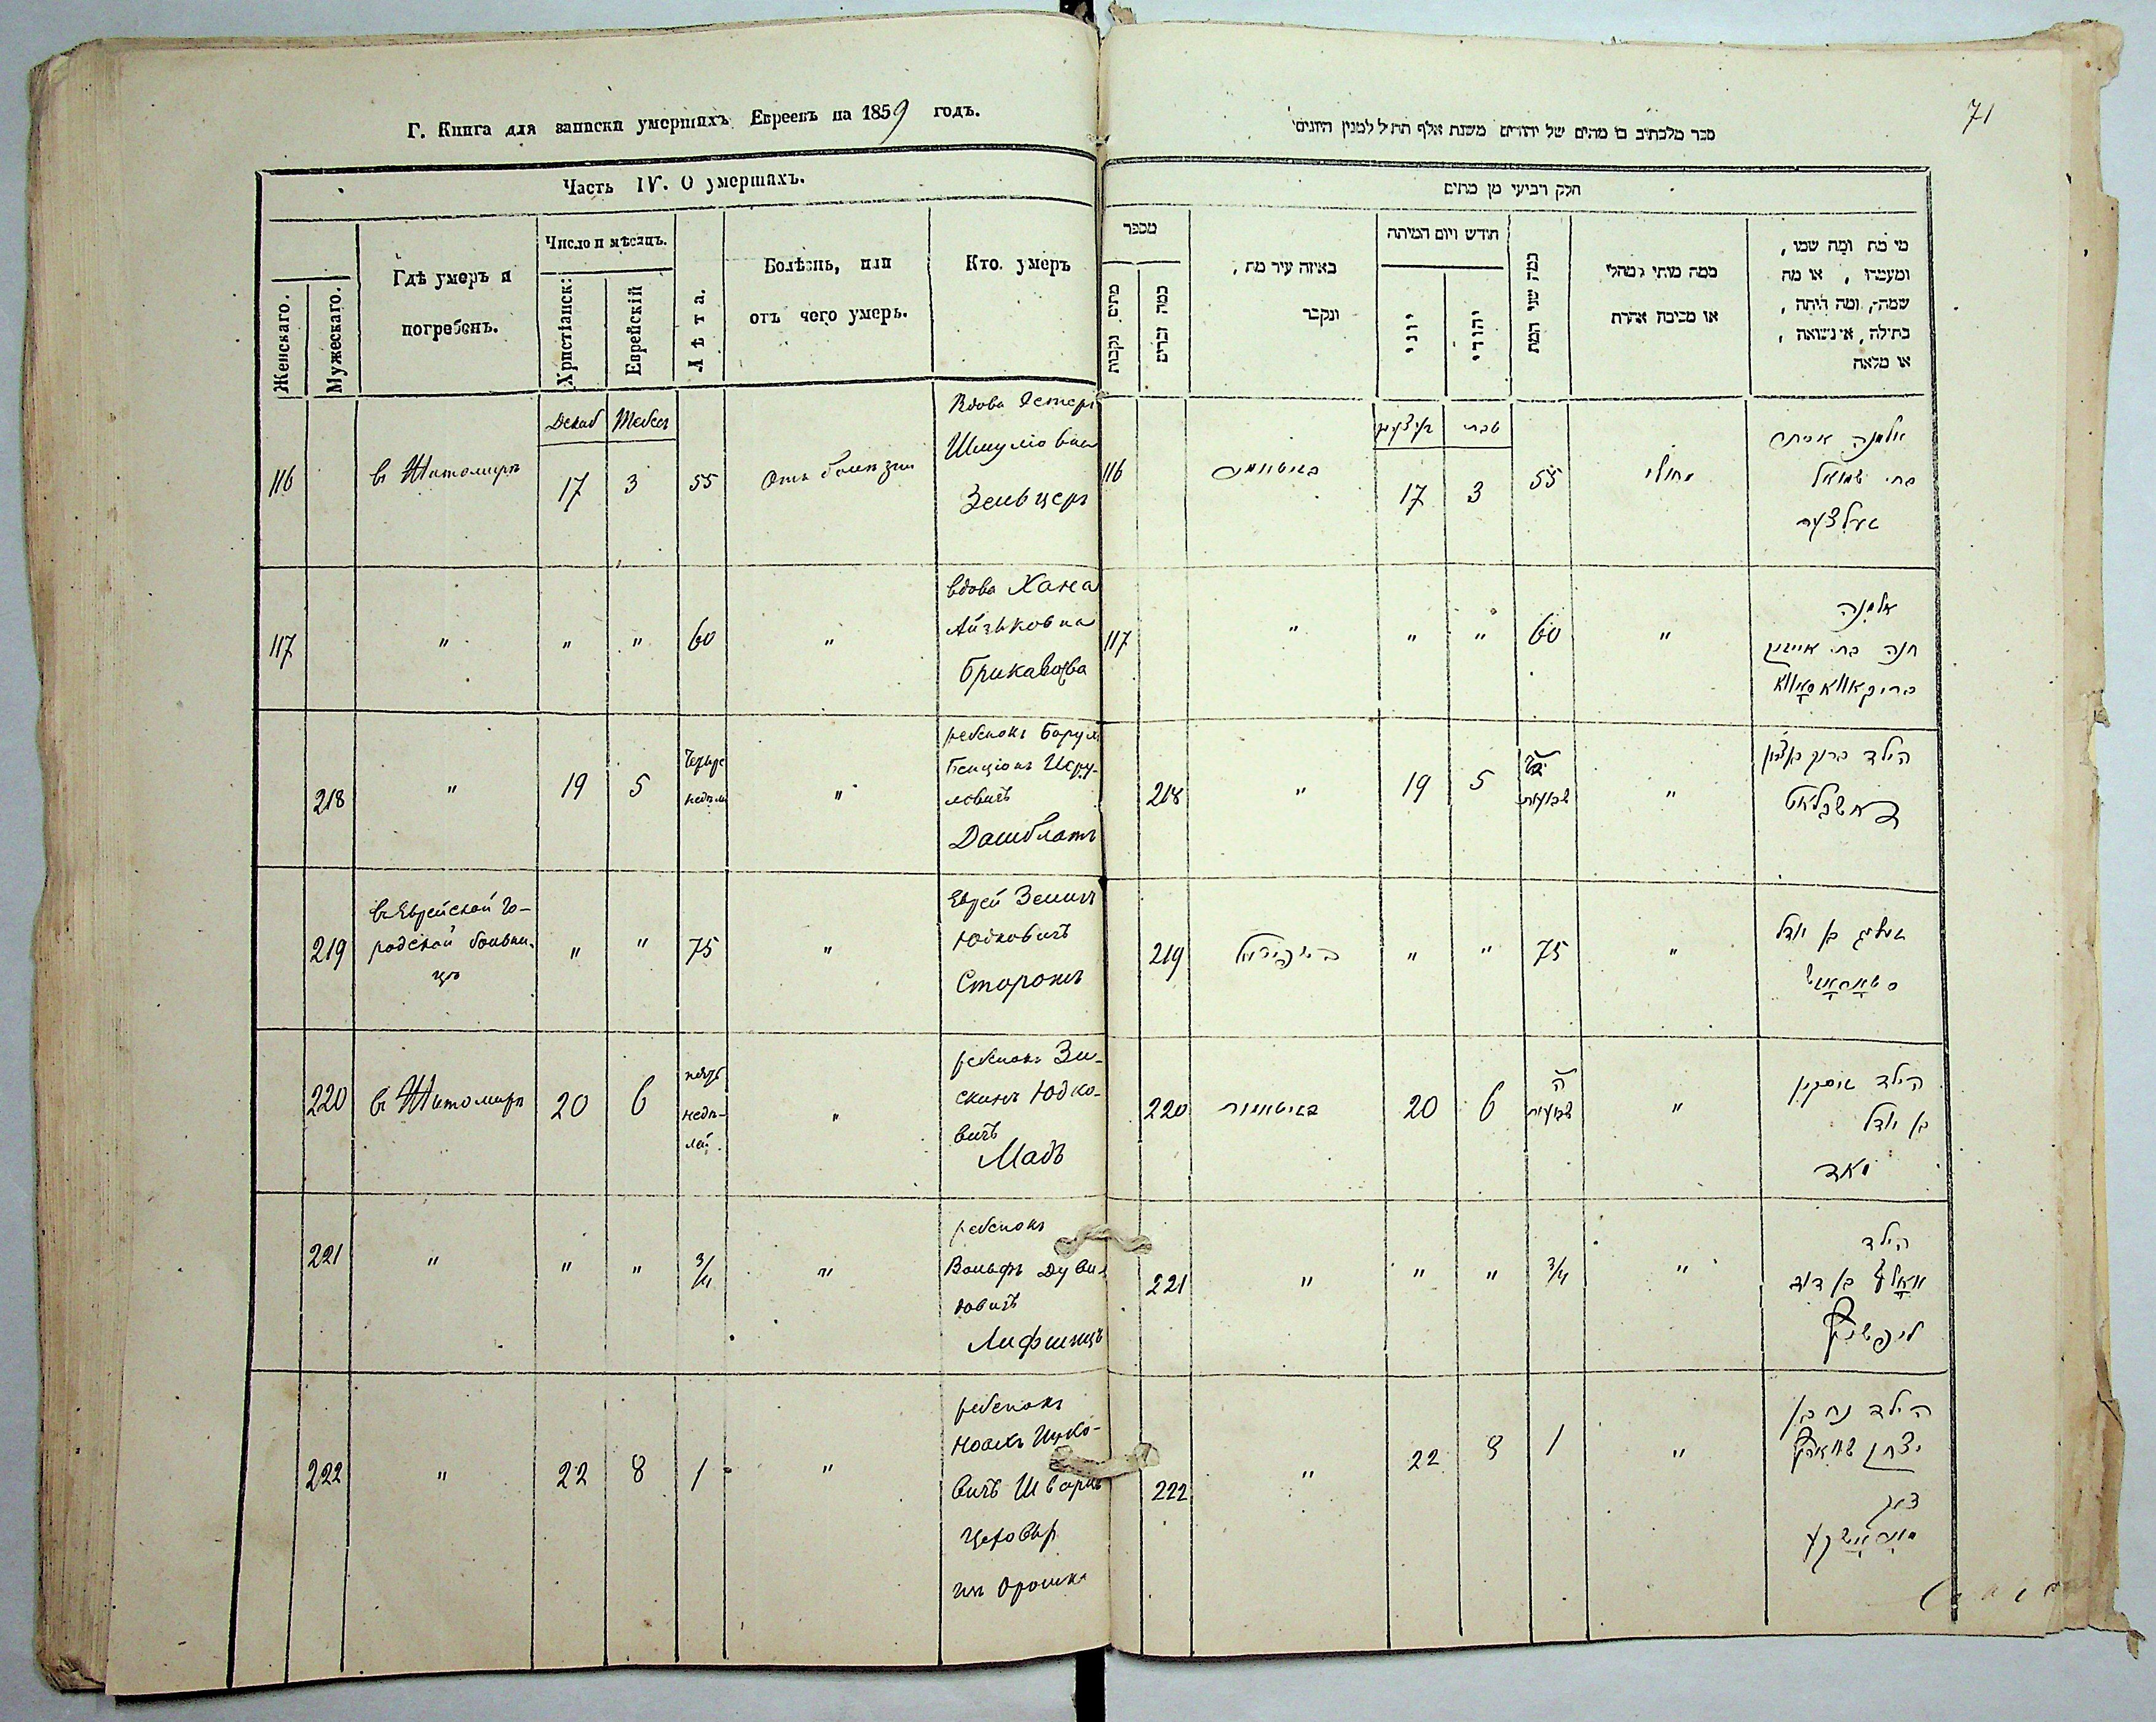 Г. Книга для записки умершихъ Евреевъ на 1859 годъ.
Часть IV. О умершихъ.
Женскаго.
Мужескаго.
Гдѣ умеръ и
погребенъ.
Число и мѣсяцъ.
Христіанск:
Еврейскій
Лѣта.
Болѣзнь, или
отъ чего умеръ.
Кто умеръ
Декаб Тебес
116 в Житомирѣ 17 3 55
Вдова Эстеръ
Шмуліовна
Зельцеръ
117 " " " 60 "
вдова Хана
Айзиковна
218 " 19 5 "
Четыре
недѣли
ребенокъ Борух
Бенціонъ Исру-
ловичъ
Дашблатъ
219 " " 75 "
въ Еврейской го-
родской больни-
цѣ
Еврей Зелигъ
Юдковичъ
Сторожъ
220 в Житомирѣ 20 6 "
пять
недѣ-
ль
ребенокъ Зи-
скинъ Юдко-
вичъ
Мадъ
221 " " " 3/4 "
ребенокъ
Вольфъ Дуви-
довичъ
Лифшицъ
222 " 22 8 1 "
ребенокъ
Ноахъ Ицко-
вичъ Шварцъ
71
ספר מלכתיב בו מתים של יהודים משנת אלף תתיל למנין היוניםי
חלק רביעי מן מתים
מספר
מתים נקבות
כמה זכרים
באיזה עיר מת,
ונקבר
חודש ויום המיתה
יוני
יהודי
כמה שני המת
ממה מותי ומחלי
או מסיבה אחרת
מי מת ומה שמו,
ומעמדו, או מת
שמה, ומה היתה,
בתולה, או נשואה,
או מלאה
טבת
116 17 3 55 מחולי
אלמנה
בת שמואל
זעלצער
117 " " " 60 "
אלמנה
חנה בת אייזיק
218 " 19 5 "
שבועות
הילד ברוך בן ציון
דאשבלאט
219 " " 75 "
זעליג בן יודל
סטאראזש
220 בזיטאמיר 20 6 "
ה
שבועות
הילד זיסקין
בן יודל
מאד
221 " " " 3/4 "
הילד
וואלף בן דוד
ליפשיץ
222 " 22 8 1 "
הילד נח בן
יצחק שווארץ